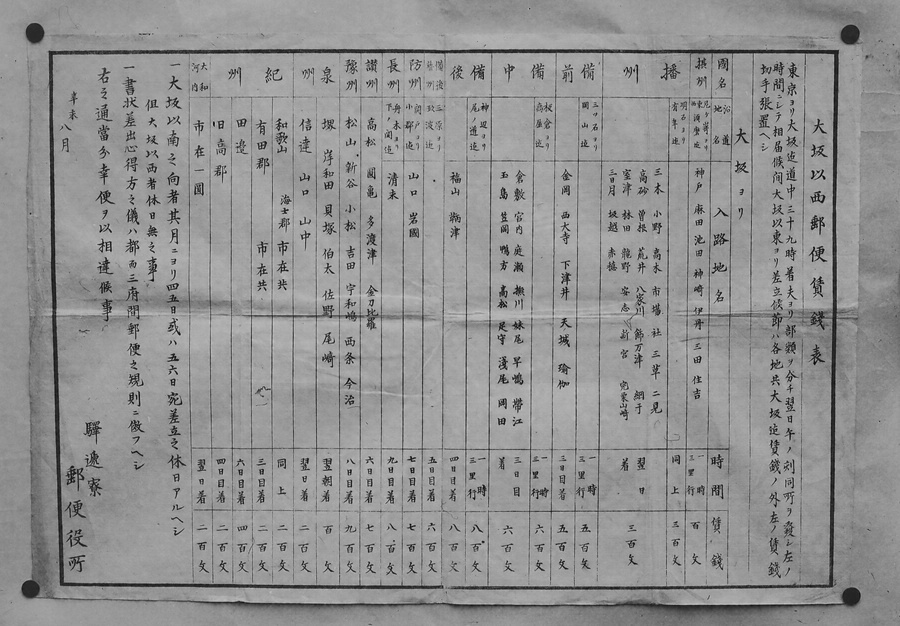 大坂以西郵便賃錢表
東京ヨリ大坂迄道中三十九時着夫ヨリ部類ヲ分チ翌日午ノ刻同所ヲ發シ左ノ
時間ニシテ相届候間大坂以東ヨリ差立候節ハ各地共大坂迄賃錢ノ外左ノ賃錢
切手張置ヘシ
大坂ヨリ
國名 沿道地名 入路地名 時間 賃錢
摂州 尼ケ崎ヨリ西須磨迄 神戸 麻田 池田 神崎 伊丹 三田 住吉 一時三里行 百文
播州 明石ヨリ有年迄 同上 三百文
三木 小野 高木 市場 社 三草 二見
高砂 曽根 荒井 八家川 飾万津 網干
室津 林田 龍野 安志 新宮 宍粟山崎
三日月 坂越 赤穂 翌日着 三百文
備前 三ツ石ヨリ岡山迄 一時三里行 五百文
金岡 西大寺 下津井 天城 瑜伽 三日目着 五百文
備中 板倉ヨリ高屋迄 一時三里行 六百文
倉敷 宮内 庭瀬 撫川 妹尾 早嶋 帶江
玉島 笠岡 鴨方 高松 足守 淺尾 岡田 三日目着 六百文
備後 神辺ヨリ尾ノ道迄 一時三里行 八百文
福山 鞆津 四日目着 八百文
備後 三原ヨリ 五日目着 六百文
防州 山口 岩國 七日目着 七百文
長州 舟木ヨリ下ノ関迄 清末 九日目着 八百文
讃州 高松 圓亀 多渡津 金刀比羅 六日目着 七百文
豫州 松山 新谷 小松 吉田 宇和嶋 西条 今治 八日目着 九百文
泉州 堺 岸和田 貝塚 伯太 佐野 尾崎 翌朝着 百文
信達 山口 山中 翌日着 二百文
紀州 和歌山 海士郡 市在共 同上 二百文
有田郡 市在共 三日目着 三百文
田邉 六日目着 四百文
旧高郡 四日目着 四百文
大和 河内 市在一圓 翌日着 二百文
一大坂以南之向者其月ニヨリ四五日或ハ五六日宛差立之休日アルヘシ
但大坂以西者休日無之事
一書状差出心得方之儀ハ都而三府間郵便之規則ニ倣フヘシ
右之通當分幸便ヲ以相達候事
辛未八月
驛逓寮
郵便役所